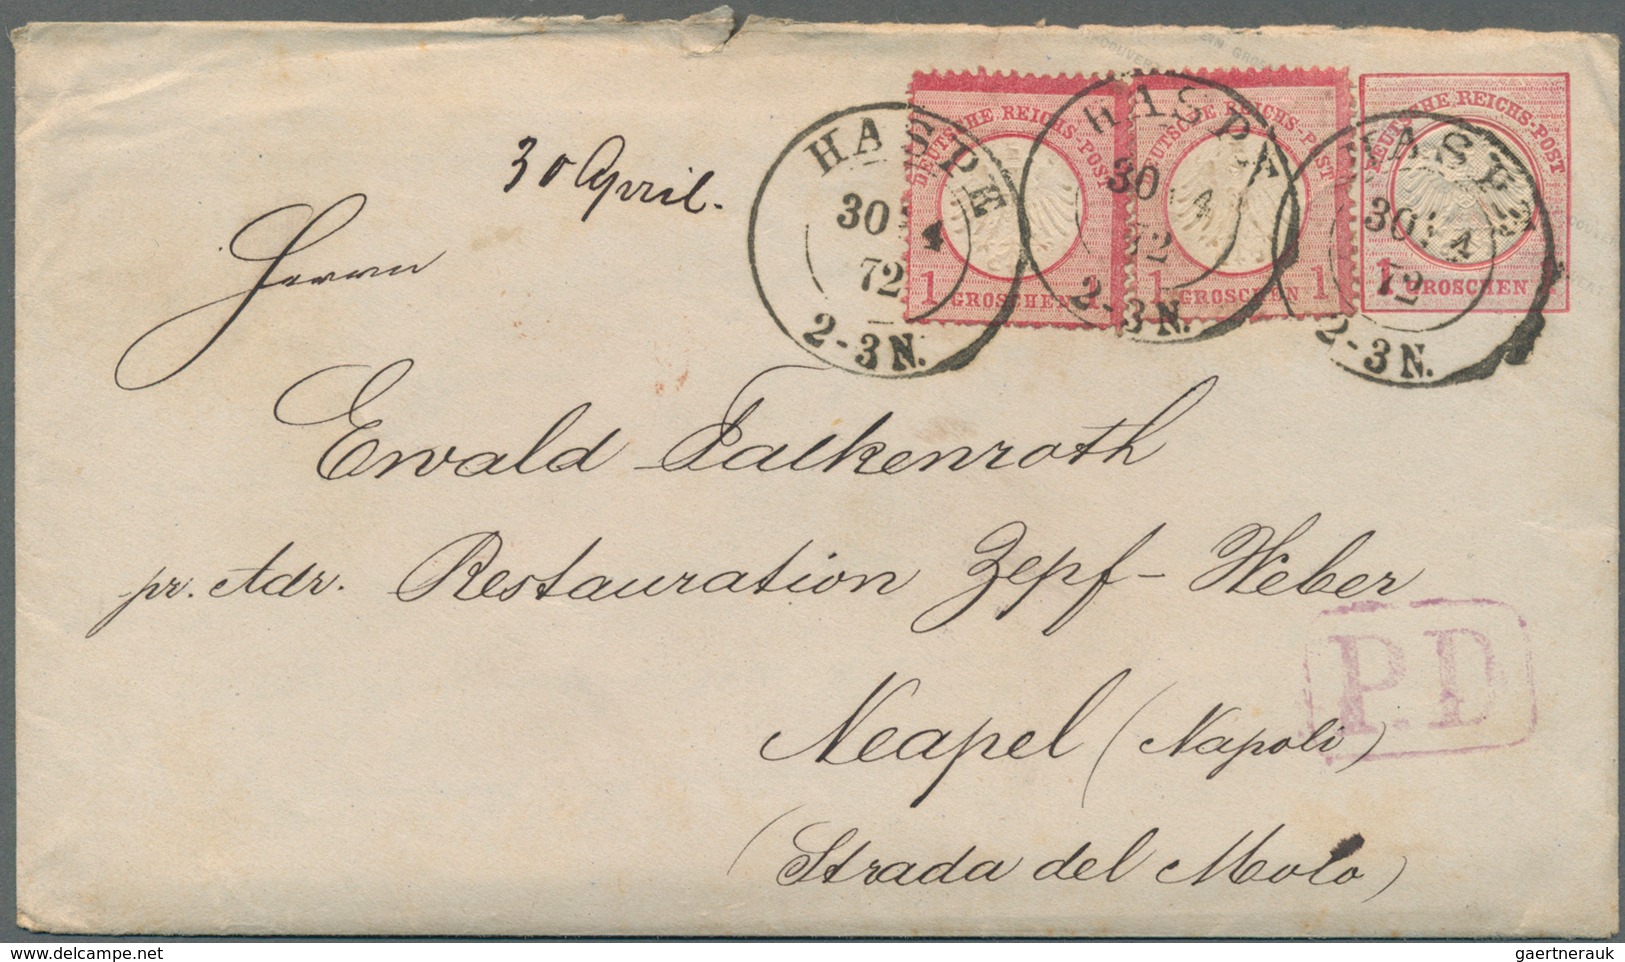 30 April.
HASPE
30 4
72
2-3 N.
DEUTSCHE REICHS-POST
1 GROSCHEN 1
HASPE
30 4
72
2-3 N.
DEUTSCHE REICHS-POST
1 GROSCHEN 1
HASPE
30 4
72
2-3 N.
DEUTSCHE REICHS-POST
1 GROSCHEN 1
Herrn
Ewald Falkenroth
pr. Adr. Restauration Zepf-Weber
P.D
Neapel (Napoli)
(Strada del Molo)
delcampe.net
gaertnerauk